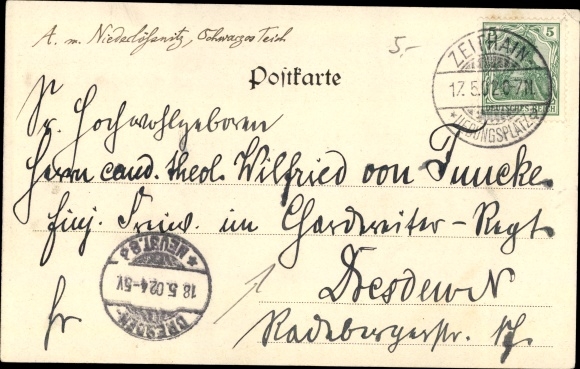 A. m. Niederlößnitz, Schwarzes Teich
5,-
5
DEUTSCHES REICH
ZEITHAIN
17.5.02.6-7N.
* ÜBUNGSPLATZ *
Postkarte
Sr. Hochwohlgeboren
Herrn cand. theol. Wilfried von Tuncke
Einj. Freiw. im Gardereiter-Regt
Dresden N
Radebergerstr.
DRESDEN-
18.5.02.4-5V.
* NEUST. 8